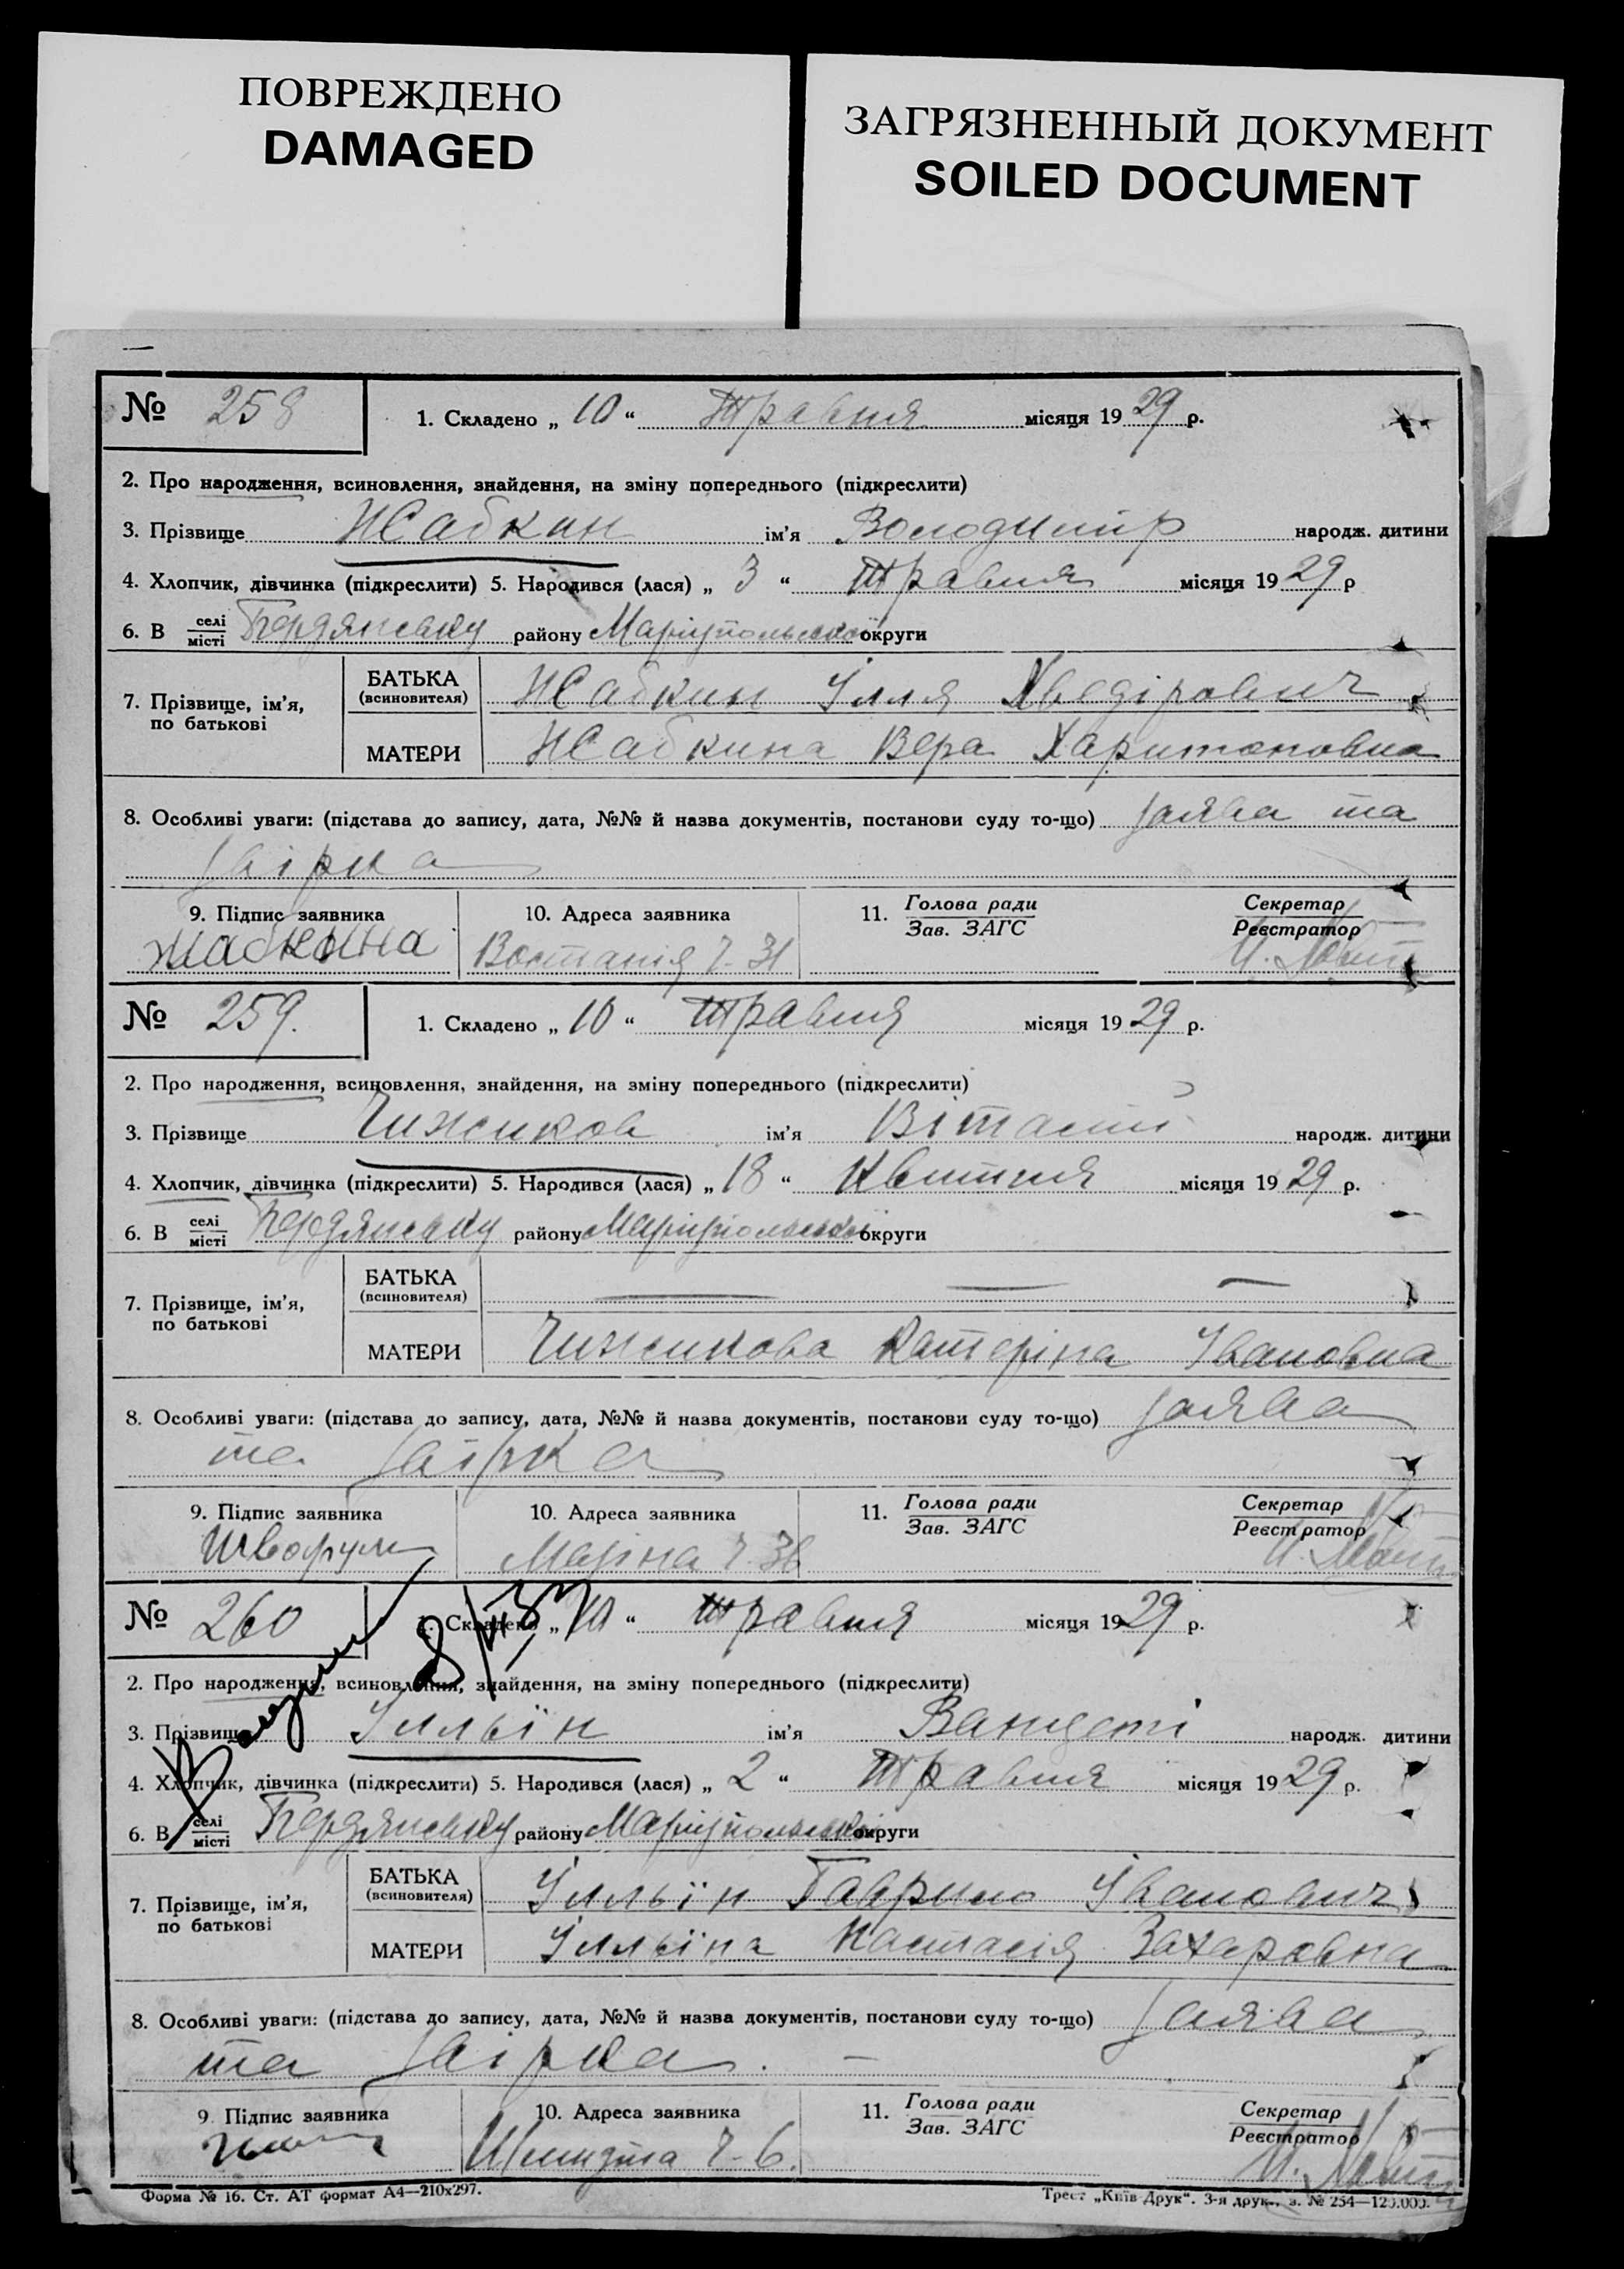 ПОВРЕЖДЕНО
DAMAGED
ЗАГРЯЗНЕННЫЙ ДОКУМЕНТ
SOILED DOCUMENT
№ 258 1. Складено „ 10 “ Травня місяця 19 29 р.
2. Про народження, всиновлення, знайдення, на зміну попереднього (підкреслити)
3. Прізвище Жабкин ім'я Володимір народж. дитини
4. Хлопчик, дівчинка (підкреслити) 5. Народився (лася) „ 3 “ Травня місяця 19 29 р
6. В селі місті Бердянську району Маріупольської округи
7. Прізвище, ім'я, по батькові
БАТЬКА (всиновителя) Жабкин Ілля Хведірович
МАТЕРИ Жабкина Вера Харитоновна
8. Особливі уваги: (підстава до запису, дата, №№ й назва документів, постанови суду то-що) заява та
звірка
9. Підпис заявника 10. Адреса заявника 11. Голова ради Зав. ЗАГС Секретар Реєстратор
Жабкина Востания ч. 31
№ 259. 1. Складено „ 10 “ Травня місяця 19 29 р.
2. Про народження, всиновлення, знайдення, на зміну попереднього (підкреслити)
3. Прізвище Чижиков ім'я Віталій народж. дитини
4. Хлопчик, дівчинка (підкреслити) 5. Народився (лася) „ 18 “ Квитня місяця 19 29 р.
6. В селі місті Бердянську району Маріупольської округи
7. Прізвище, ім'я, по батькові
БАТЬКА (всиновителя) — — —
МАТЕРИ Чижикова Катеріна Івановна
8. Особливі уваги: (підстава до запису, дата, №№ й назва документів, постанови суду то-що) заява
та звірка
9. Підпис заявника 10. Адреса заявника 11. Голова ради Зав. ЗАГС Секретар Реєстратор
№ 260 1. Складено „ 10 “ травня місяця 19 29 р.
2. Про народження, всиновлення, знайдення, на зміну попереднього (підкреслити)
3. Прізвище Ілльїн ім'я народж. дитини
4. Хлопчик, дівчинка (підкреслити) 5. Народився (лася) „ 2 “ Травня місяця 19 29 р.
6. В селі місті Бердянську району Маріупольської округи
7. Прізвище, ім'я, по батькові
БАТЬКА (всиновителя) Ілльїн Гаврило Іванович
МАТЕРИ Ілльїна Настасія Захаровна
8. Особливі уваги: (підстава до запису, дата, №№ й назва документів, постанови суду то-що) заява
та звірка. —
9. Підпис заявника 10. Адреса заявника 11. Голова ради Зав. ЗАГС Секретар Реєстратор
Шмидта ч-6.
Форма № 16. Ст. АТ формат А4—210х297. Трест „Київ-Друк“. 3-я друк., з. № 254—120.000.